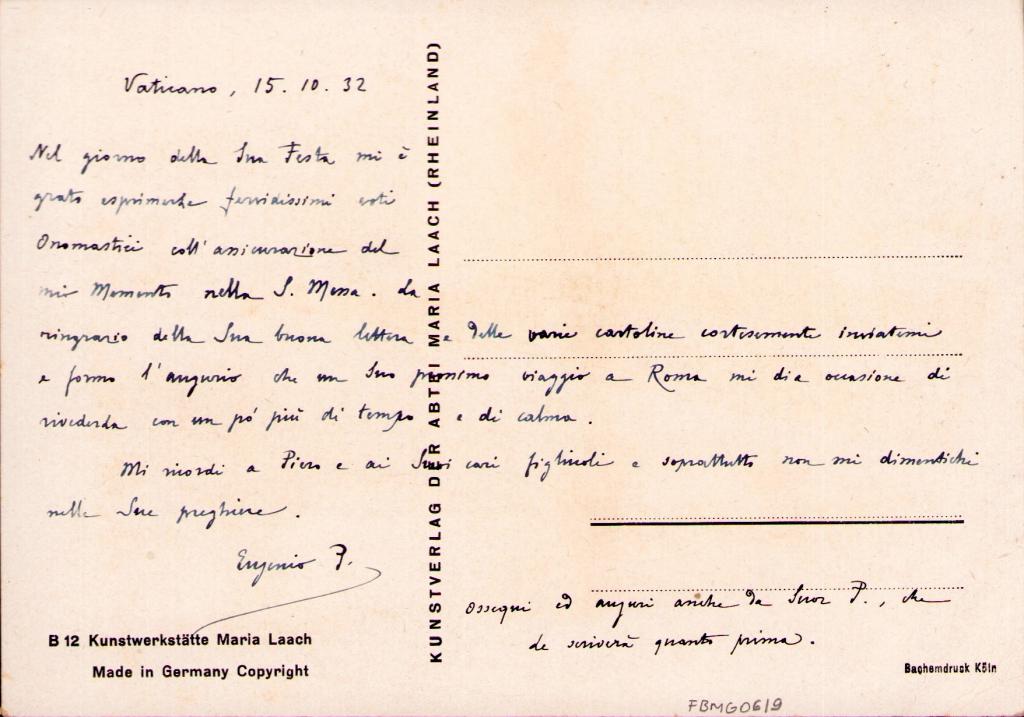 Vaticano, 15. 10. 32
Nel giorno della Sua Festa mi è
grato esprimerle fervidissimi voti
Onomastici coll'assicurazione del
mio Memento nella S. Messa. La
ringrazio della Sua buona lettera e delle varie cartoline cortesemente inviatemi
e formo l'augurio che un Suo prossimo viaggio a Roma mi dia occasione di
rivederla con un pó più di tempo e di calma.
Mi ricordi a Piero e ai Suoi cari figliuoli e soprattutto non mi dimentichi
nelle Sue preghiere.
Eugenio P.
Ossequi ed auguri anche da Suor P., che
Le scriverà quanto prima.
KUNSTVERLAG DER ABTEI MARIA LAACH (RHEINLAND)
B 12 Kunstwerkstätte Maria Laach
Made in Germany Copyright
Bachemdruck Köln
FBMG06/9